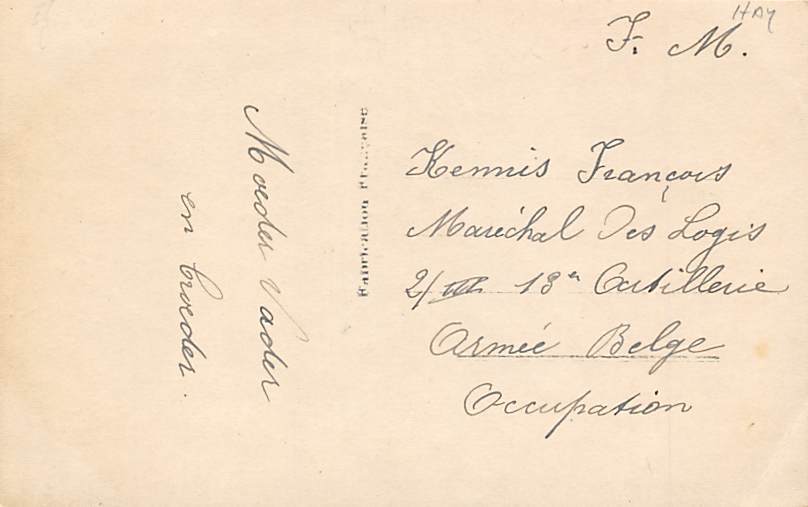 HAY
F. M.
Moeder Vader
en broeder.
Fabrication Française
Kennis François
Maréchal Des Logis
2/III 13e Artillerie
Armée Belge
Occupation